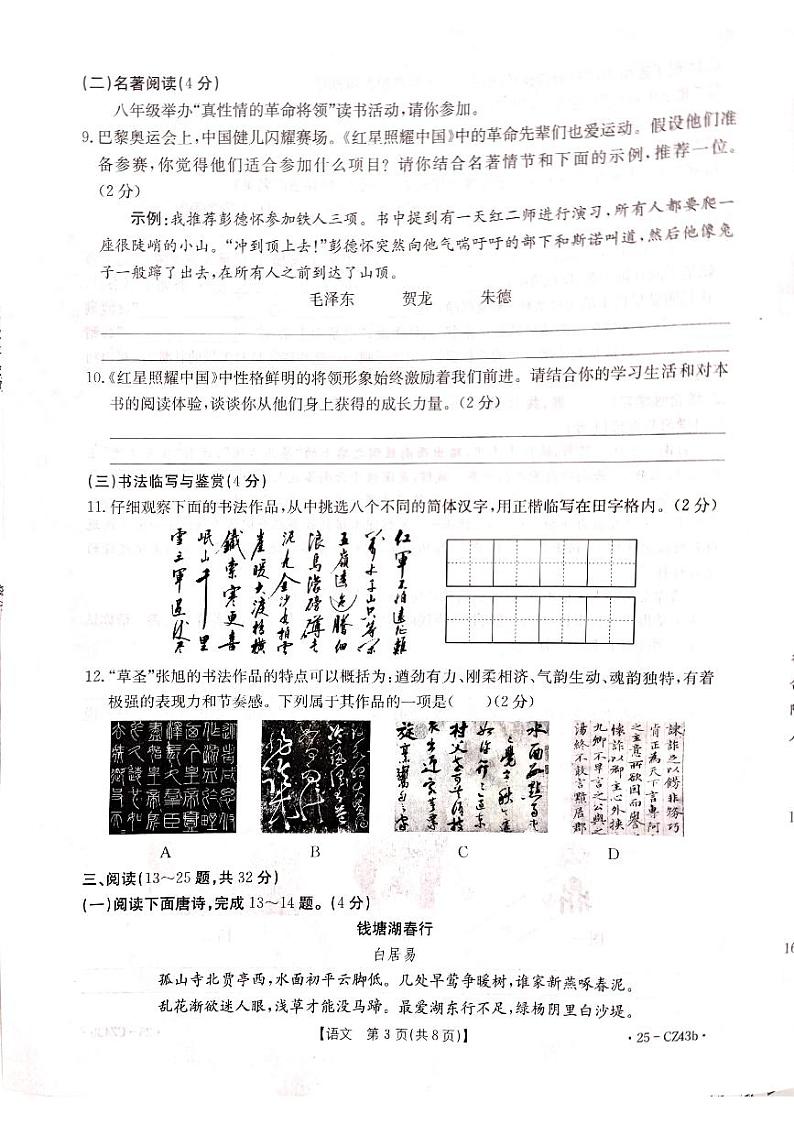 (二)名著阅读(4分)
八年级举办“真性情的革命将领”读书活动,请你参加。
9.巴黎奥运会上,中国健儿闪耀赛场。《红星照耀中国》中的革命先辈们也爱运动。假设他们准
备参赛,你觉得他们适合参加什么项目?请你结合名著情节和下面的示例,推荐一位。
(2分)
示例:我推荐彭德怀参加铁人三项。书中提到有一天红二师进行演习,所有人都要爬一
座很陡峭的小山。“冲到顶上去!”彭德怀突然向他气喘吁吁的部下和斯诺叫道,然后他像兔
子一般蹿了出去,在所有人之前到达了山顶。
毛泽东 贺龙 朱德
10.《红星照耀中国》中性格鲜明的将领形象始终激励着我们前进。请结合你的学习生活和对本
书的阅读体验,谈谈你从他们身上获得的成长力量。(2分)
(三)书法临写与鉴赏(4分)
11.仔细观察下面的书法作品,从中挑选八个不同的简体汉字,用正楷临写在田字格内。(2分)
红軍不怕遠征難
萬水千山只等闲
五嶺逶迤腾细
浪烏蒙磅礴走
泥丸金沙水拍雲
崖暖大渡桥橫
鐵索寒更喜
岷山千里
雪三軍過後尽
12.“草圣”张旭的书法作品的特点可以概括为:遒劲有力、刚柔相济、气韵生动、魂韵独特,有着
极强的表现力和节奏感。下列属于其作品的一项是( )(2分)
A B C D
三、阅读(13～25题,共32分)
(一)阅读下面唐诗,完成13～14题。(4分)
钱塘湖春行
白居易
孤山寺北贾亭西,水面初平云脚低。几处早莺争暖树,谁家新燕啄春泥。
乱花渐欲迷人眼,浅草才能没马蹄。最爱湖东行不足,绿杨阴里白沙堤。
【语文 第3页(共8页)】
·25-CZ43b·